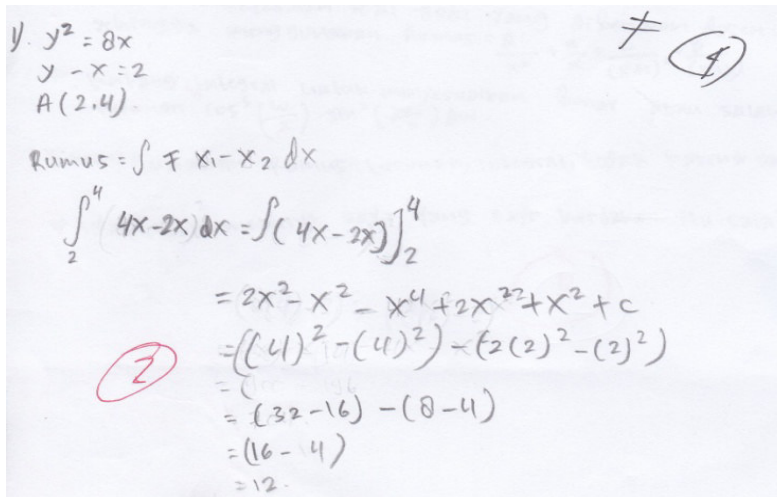 1). y² = 8x
y - x = 2
A (2.4)
Rumus = ∫ x₁ - x₂ dx
∫₂⁴ (4x-2x) dx = ∫( 4x - 2x)]₂⁴
= 2x² - x² - x⁴ + 2x² + x² + c
= ((4)² - (4)²) - (2(2)² - (2)²)
= (32 - 16) - (8 - 4)
= (16 - 4)
= 12.
1
2